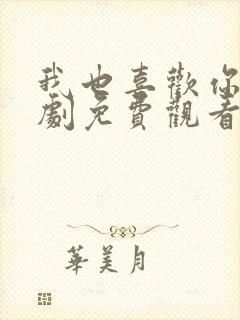 我也喜歡你
劇免費觀看
華美月